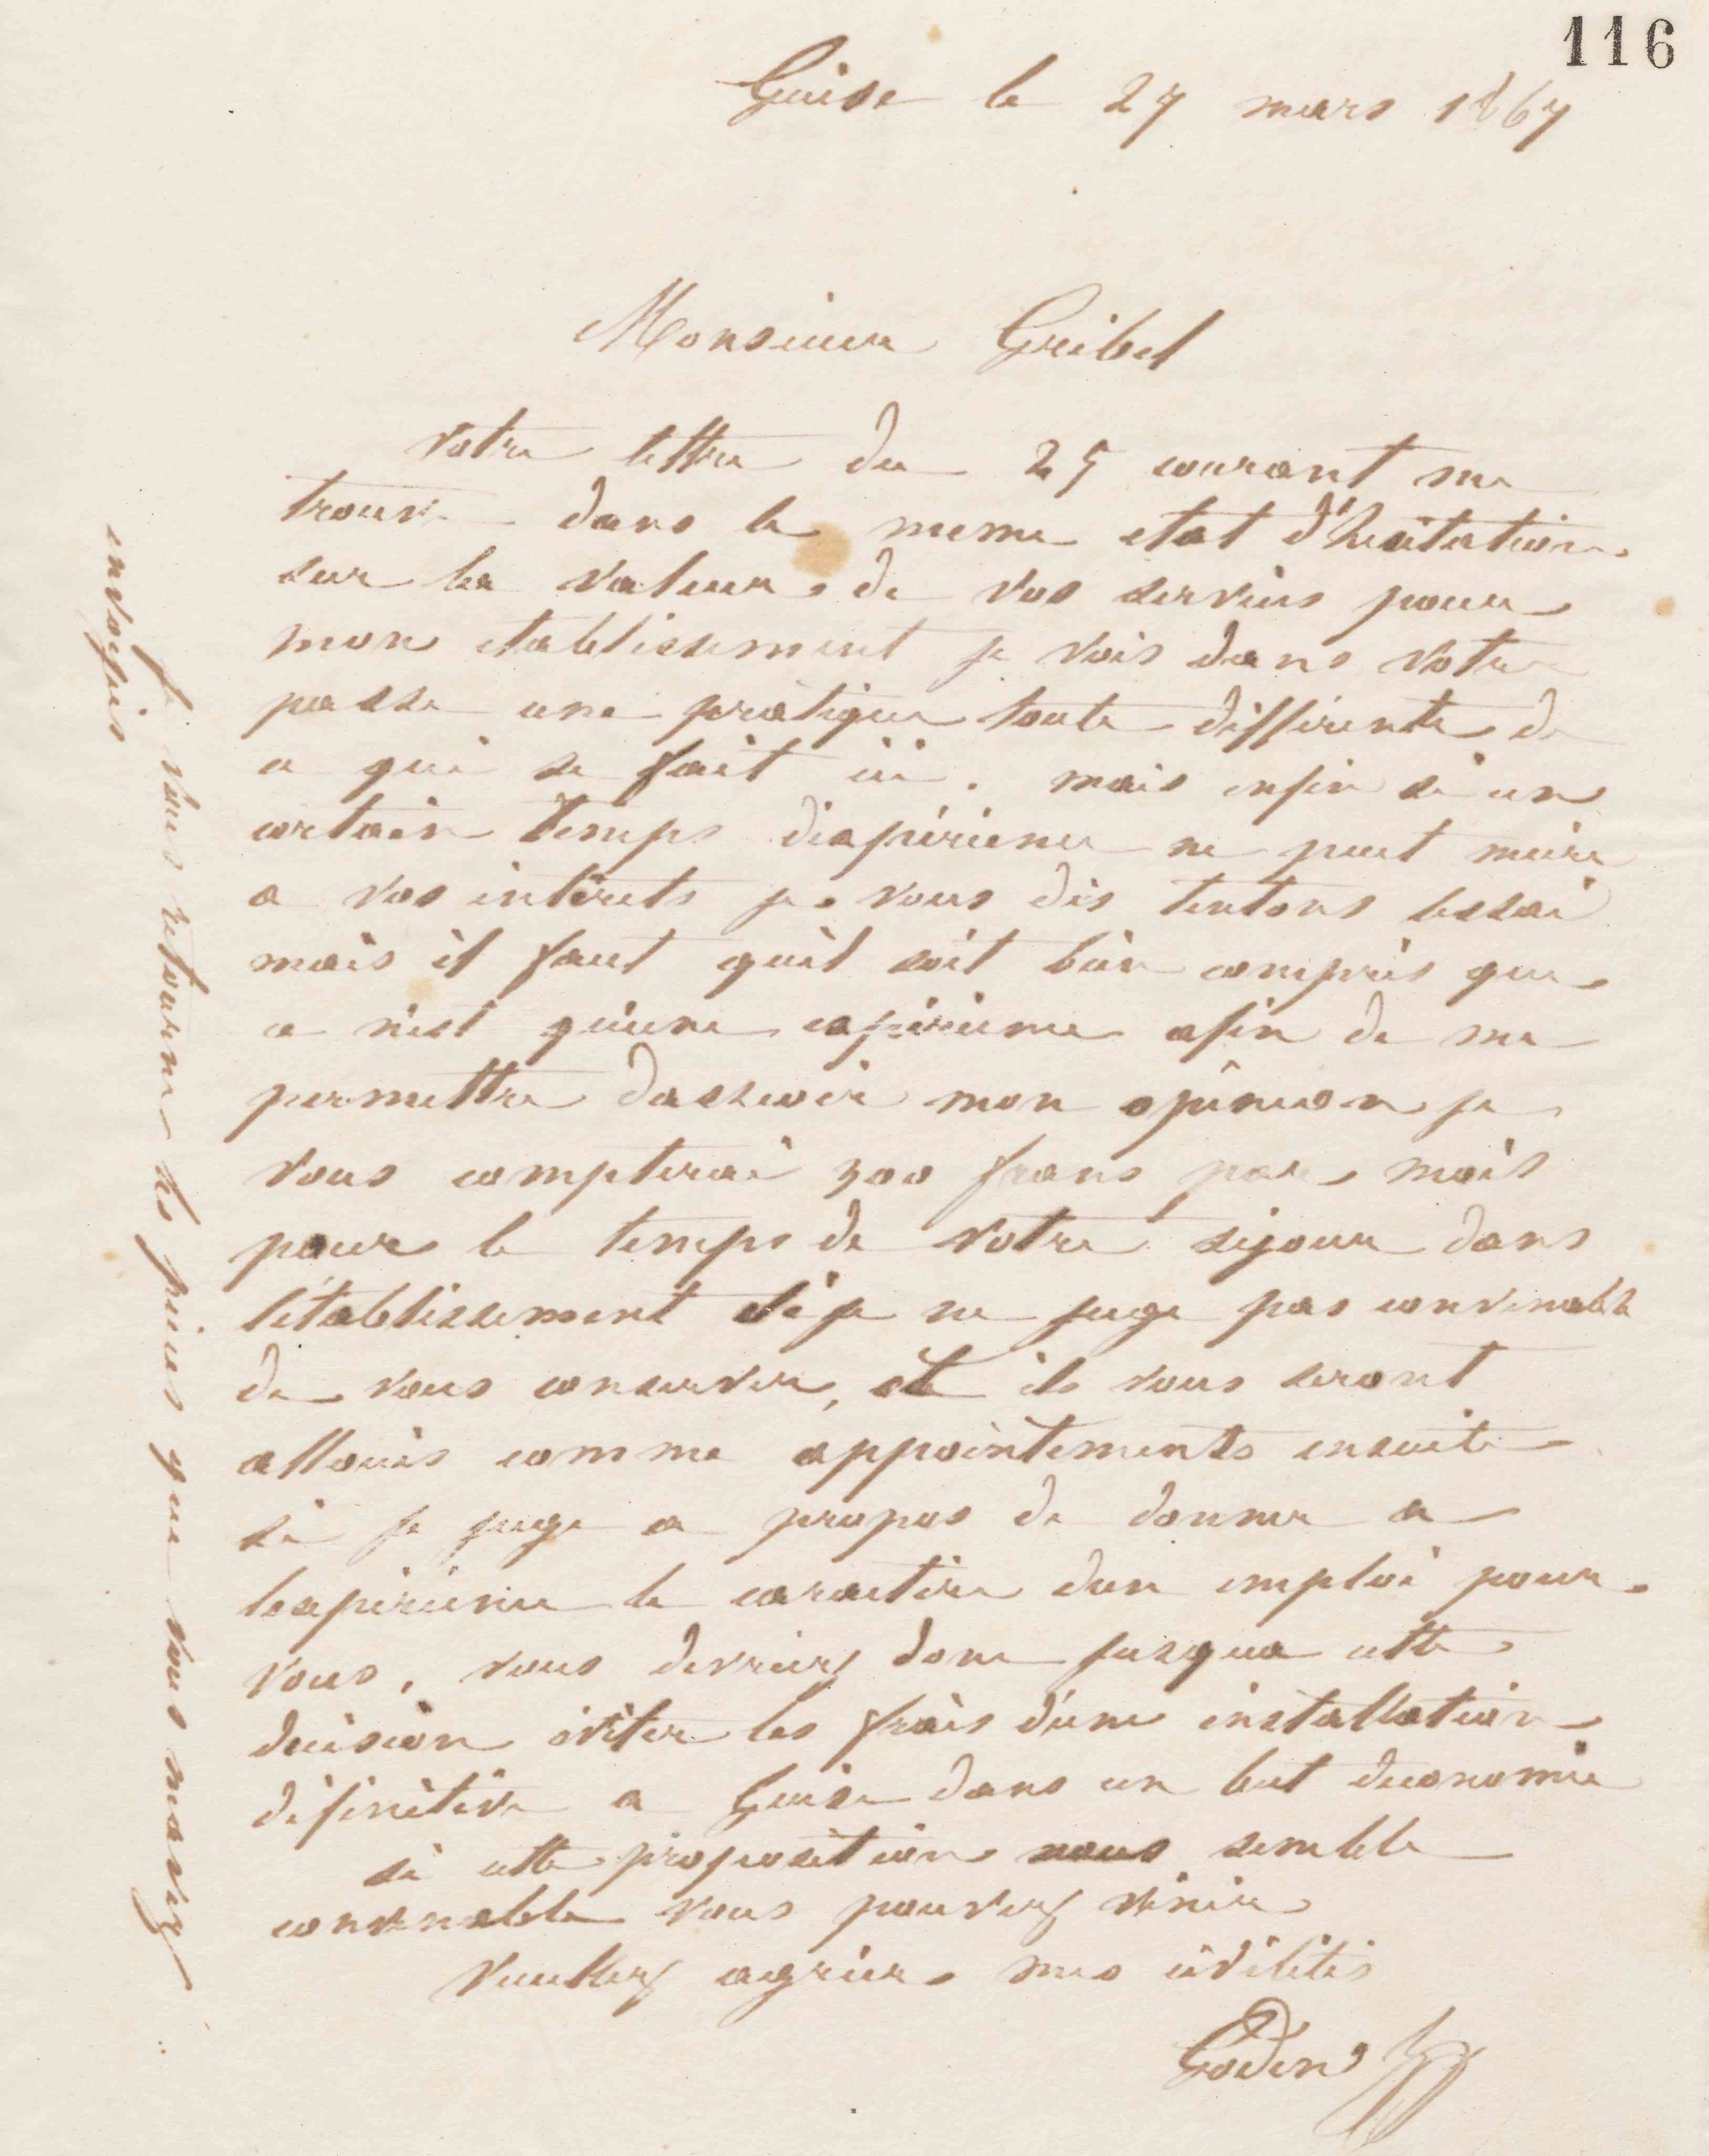 116
Guise le 27 mars 1867
Monsieur Gribel
votre lettre du 25 courant me
trouve dans le meme etat d'hesitation
sur la valeur de vos services pour
mon etablissement je vois dans votre
passe une pratique toute differente de
ce qui se fait ici. mais enfin si un
certain temps d'experience ne peut nuire
a vos intérets je vous dis tentons lessai
mais il faut quil soit bien compris que
ce n'est qu'une experience afin de me
permettre dasseoir mon opinion je
vous compterai 300 frans par mois
pour le temps de votre séjour dans
létablissement si je ne juge pas convenable
de vous conserver, et ils vous seront
alloués comme appointements ensuite
si je juge a propos de donner a
lexperience le caractère dun emploi pour
vous, vous devriez donc jusqua cette
decision éviter les frais d'une installation
définitive a Guise dans un but deconomie
si cette proposition vous semble
convenable vous pouvez venir
veuillez agréer mes civilités
Godin
je vous retourne les pièces que vous m'avez
envoyées